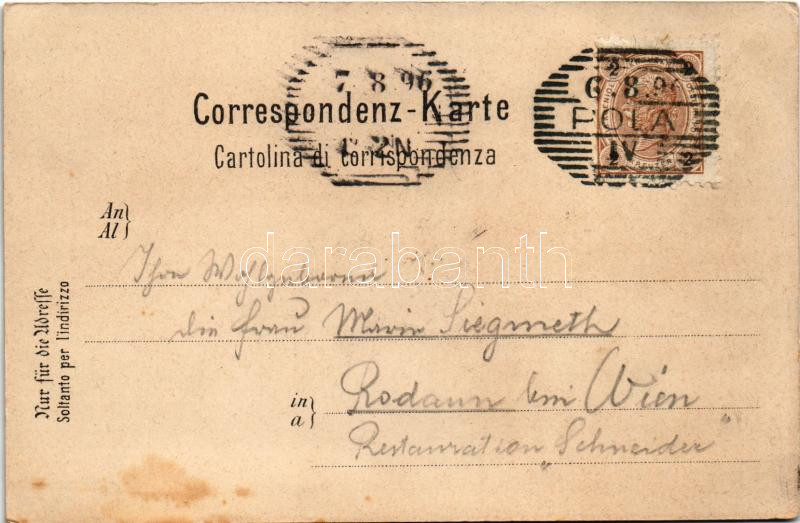 7.8.96
2N
6.8.96
POLA
IV
2
2
2
2
Correspondenz-Karte
Cartolina di corrispondenza
An
Al
darabanth
Ihro Wohlgeboren
die Frau Marie Siegmeth
in
a
Rodaun bei Wien
Restauration „Schneider“
Nur für die Adresse
Soltanto per l'indirizzo